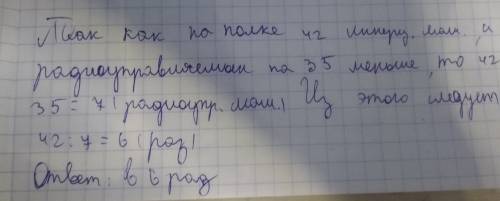 Так как на полке 42 инерц. маш., а
радиоуправляемая на 35 меньше, то 42
35 = 7 (радиоупр. маш.) Из этого следует
42 : 7 = 6 (раз)
Ответ: в 6 раз